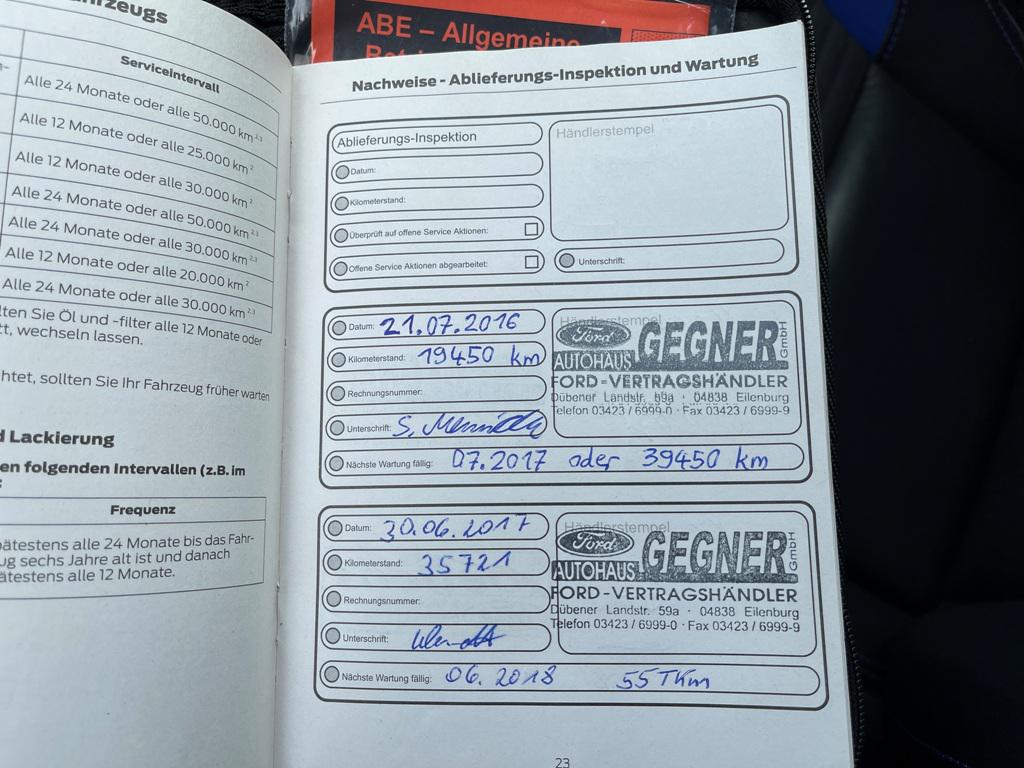 ABE – Allgemeine
rzeugs
Serviceintervall
Alle 24 Monate oder alle 50.000 km 2,3
Alle 12 Monate oder alle 25.000 km 2
Alle 12 Monate oder alle 30.000 km 2
Alle 24 Monate oder alle 50.000 km 2,3
Alle 24 Monate oder alle 30.000 km 2,3
Alle 12 Monate oder alle 20.000 km 2
Alle 24 Monate oder alle 30.000 km 2,3
lten Sie Öl und -filter alle 12 Monate oder
t, wechseln lassen.
htet, sollten Sie Ihr Fahrzeug früher warten
d Lackierung
en folgenden Intervallen (z.B. im
:
Frequenz
pätestens alle 24 Monate bis das Fahr-
ug sechs Jahre alt ist und danach
ätestens alle 12 Monate.
Nachweise - Ablieferungs-Inspektion und Wartung
Ablieferungs-Inspektion
Händlerstempel
Datum:
Kilometerstand:
Überprüft auf offene Service Aktionen:
Offene Service Aktionen abgearbeitet:
Unterschrift:
Datum: 21.07.2016
Kilometerstand: 19450 km
Rechnungsnummer:
Unterschrift:
Händlerstempel
Ford
AUTOHAUS GEGNER GmbH
FORD-VERTRAGSHÄNDLER
Dübener Landstr. 59a · 04838 Eilenburg
Telefon 03423 / 6999-0 · Fax 03423 / 6999-9
Nächste Wartung fällig: 07.2017 oder 39450 km
Datum: 30.06.2017
Kilometerstand: 35721
Rechnungsnummer:
Unterschrift:
Händlerstempel
Ford
AUTOHAUS GEGNER GmbH
FORD-VERTRAGSHÄNDLER
Dübener Landstr. 59a · 04838 Eilenburg
Telefon 03423 / 6999-0 · Fax 03423 / 6999-9
Nächste Wartung fällig: 06.2018 55 TKm
23